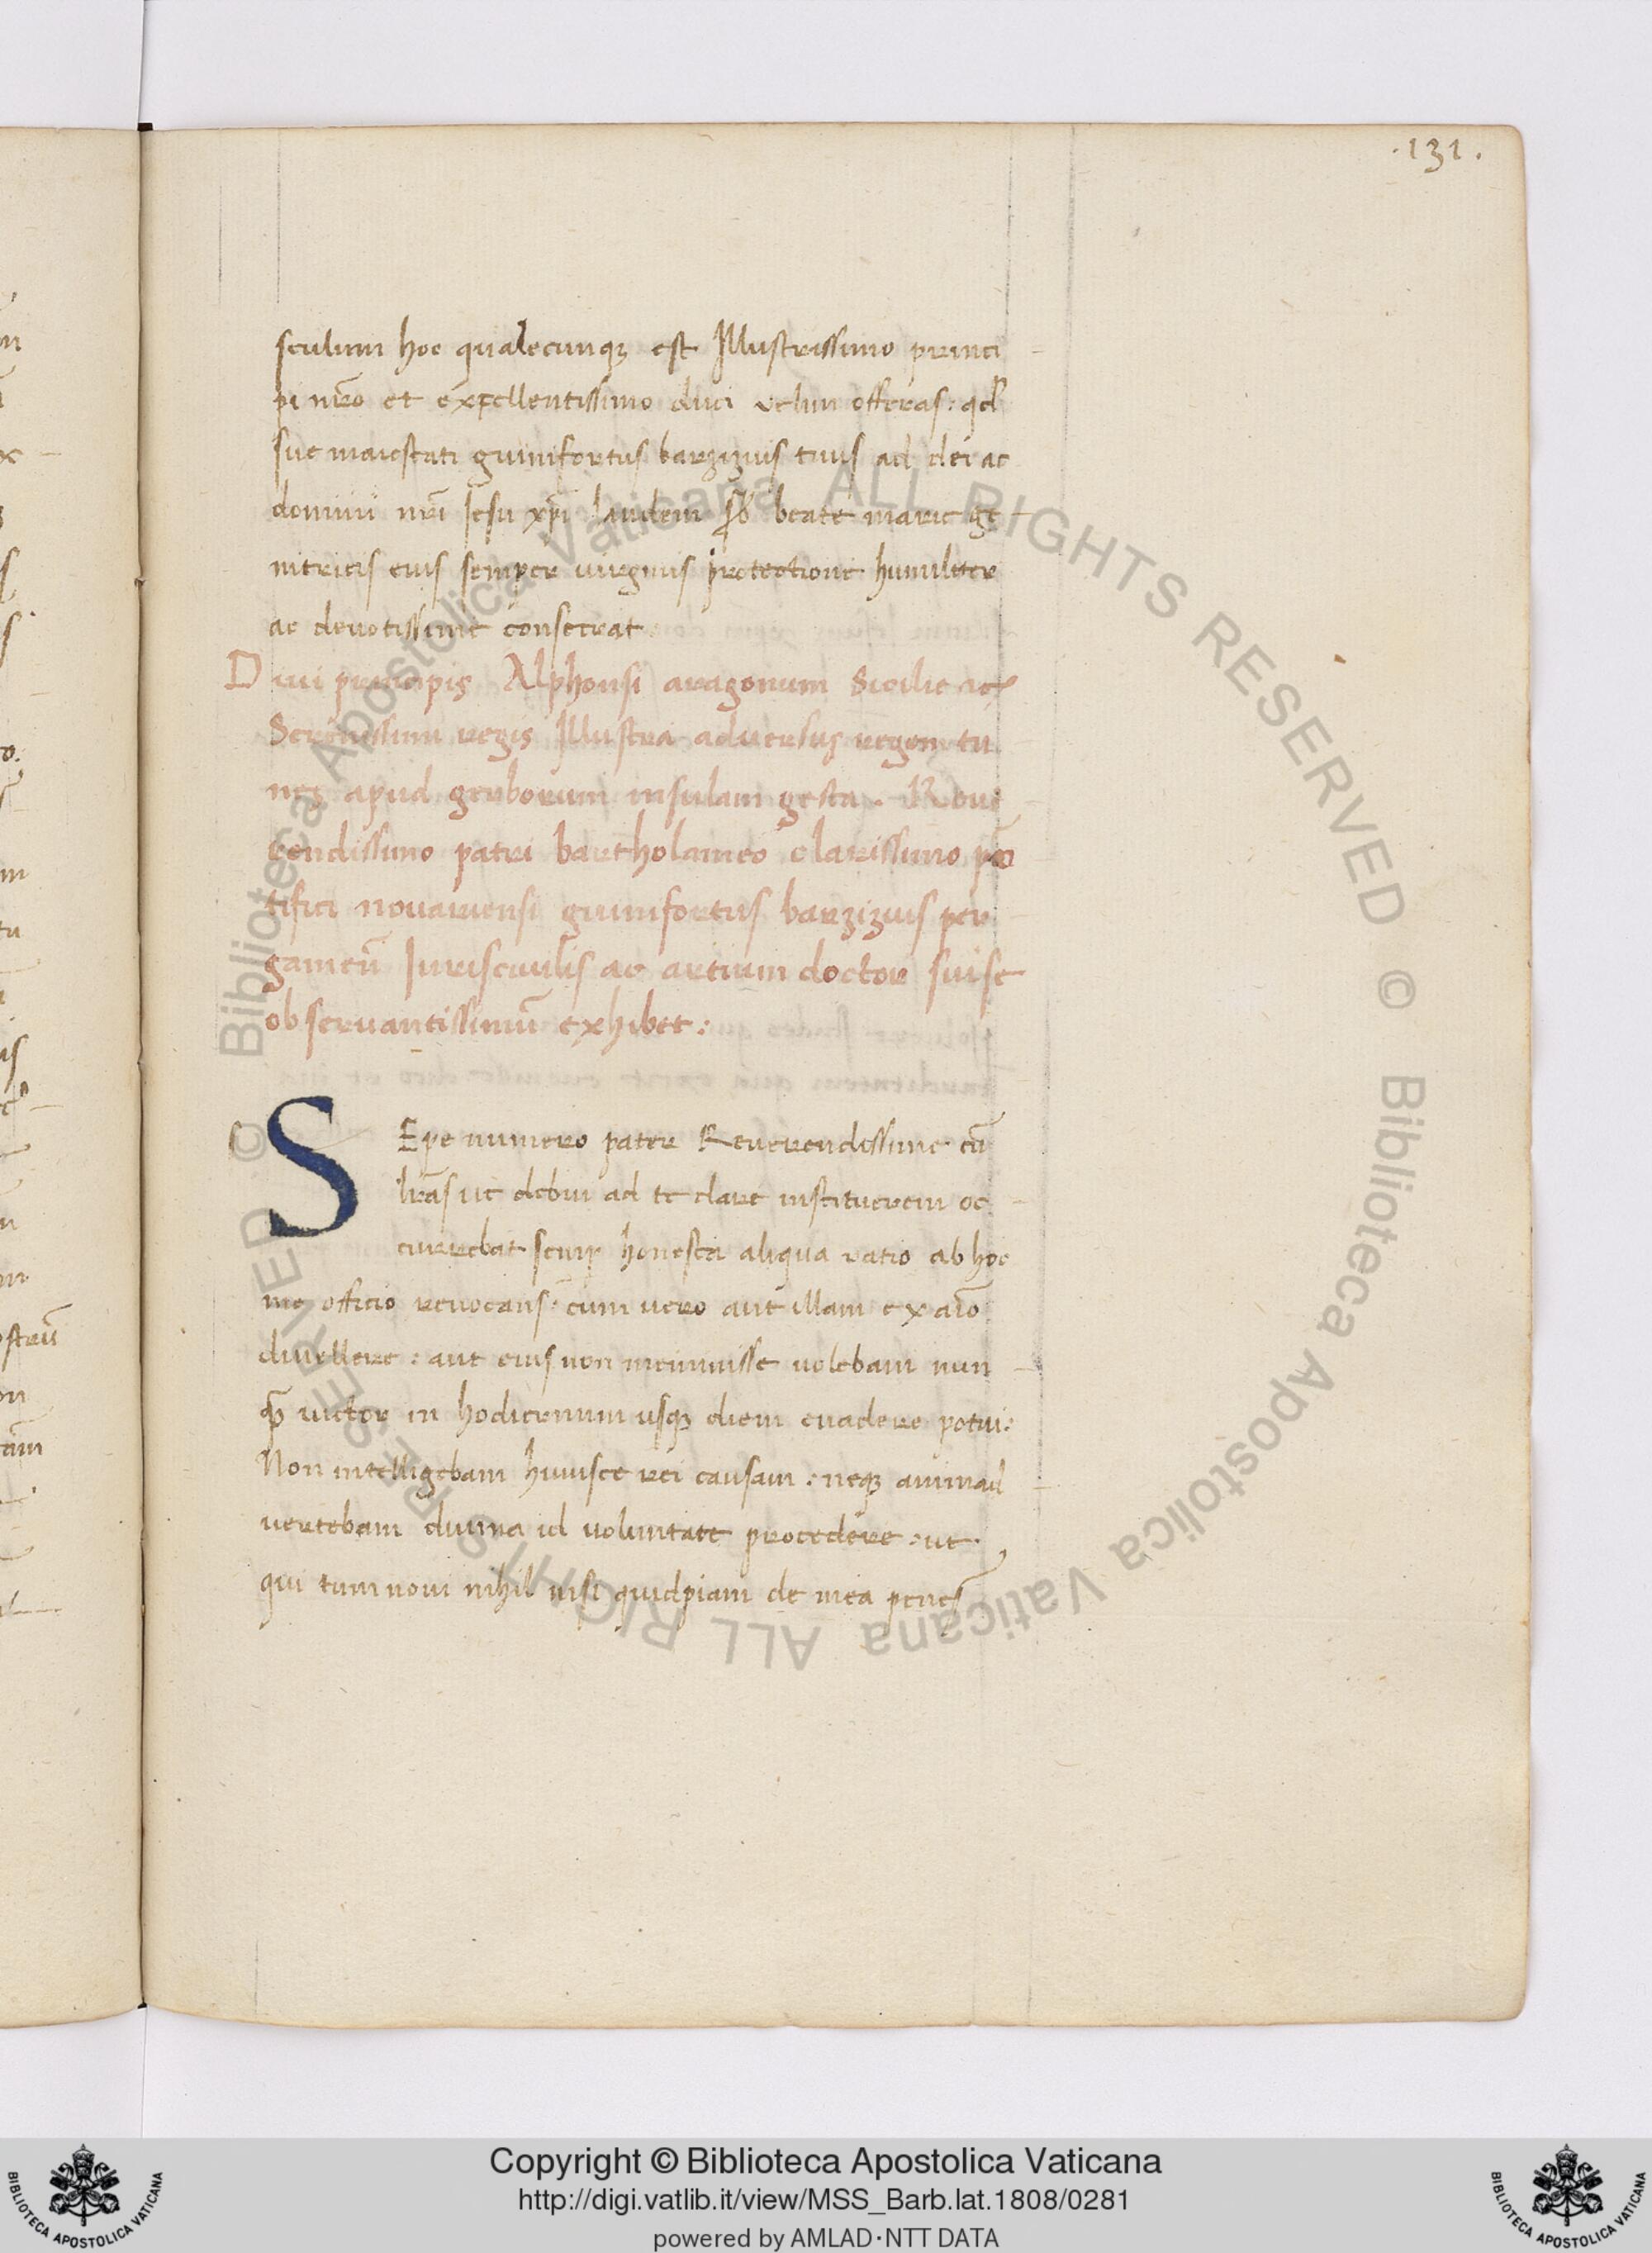 .131.
sculum hoc qualecunqꝫ est Illustrissimo princi
pi nr̄o et excellentissimo duci velim offeras: qd̄
sue maiestati guinifortus barzizius tuus ad dei ac
domini nr̄i Iesu xp̄i laudem sb̄ beate marie ge
nitricis eius semper uirginis protectione humiliter
ac deuotissime consecrat
Diui principis Alphonsi aragonum Sicilie ac
Serenissimi regis Illustria aduersus regem tu
nes apud gerborum insulam gesta. Reue
rendissimo patri bartholameo clarissimo pon
tifici nouariensi guinifortus barzizius per
gameus̄ Iuriscuulis ac artium doctor suise
obseruantissimū exhibet:
SEpe numero pater Reuerendissime cū
lr̄as ut debui ad te dare instituerem oc
currebat semp̄ honesta aliqua ratio ab hoc
me officio reuocans: cum uero aut illam ex aīo
diuellere: aut eius non meminisse uolebam nun
qꝫ uictor in hodiernum usqꝫ diem euadere potui:
Non intelligebam huiusce rei causam: neqꝫ animad
uertebam diuina id uoluntate procedere: ut
qui tum noui nihil nisi quidpiam de mea penes
Copyright © Biblioteca Apostolica Vaticana
http://digi.vatlib.it/view/MSS_Barb.lat.1808/0281
powered by AMLAD·NTT DATA
BIBLIOTECA APOSTOLICA VATICANA
BIBLIOTECA APOSTOLICA VATICANA
© Biblioteca Apostolica Vaticana ALL RIGHTS RESERVED © Biblioteca Apostolica Vaticana ALL RIGHTS RESERVED